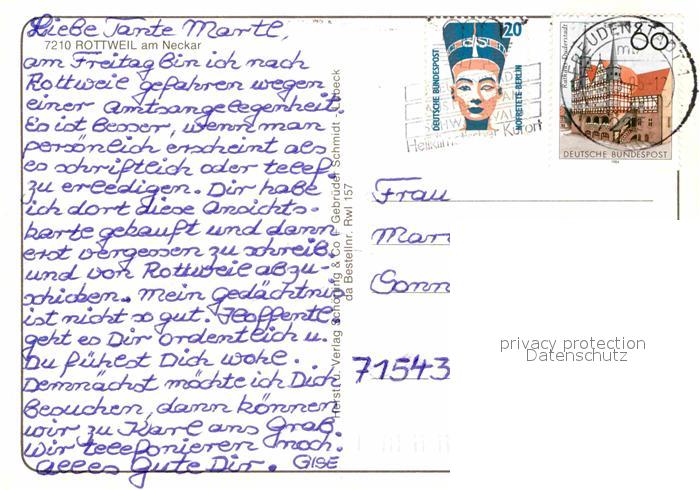 Liebe Tante Martl,
7210 ROTTWEIL am Neckar
am Freitag bin ich nach
Rottweil gefahren wegen
einer Amtsangelegenheit.
Es ist besser, wenn man
persönlich erscheint als
es schriftlich oder telef.
zu erledigen. Dir habe
ich dort diese Ansichts-
karte gekauft und dann
erst vergessen zu schreib.
und von Rottweil abzu-
schicken. Mein Gedächtnis
ist nicht so gut. Hoffentl.
geht es Dir ordentlich u.
Du fühlst Dich wohl.
Demnächst möchte ich Dich
besuchen, dann können
wir zu Karl ans Grab.
Wir telefonieren noch.
Alles Gute Dir. GISE
Verlag Schöning & Co + Gebrüder Schmidt
Bestellnr. Rwl 157
20
DEUTSCHE BUNDESPOST
NOFRETETE · BERLIN
60
DEUTSCHE BUNDESPOST
FREUDENSTADT
Kurort
Frau
Mar
Conn
71543
privacy protection
Datenschutz